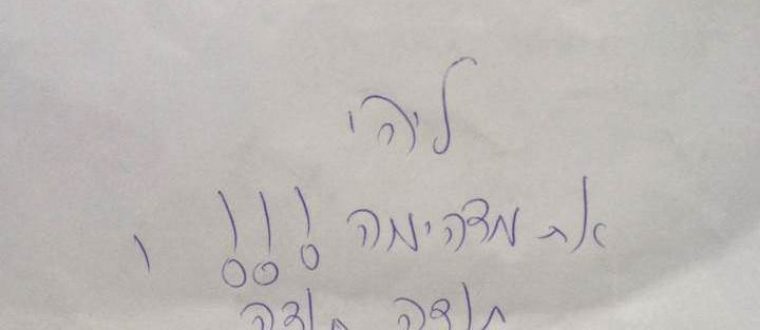 ליהי
את מדהימה !!!
תודה תודה